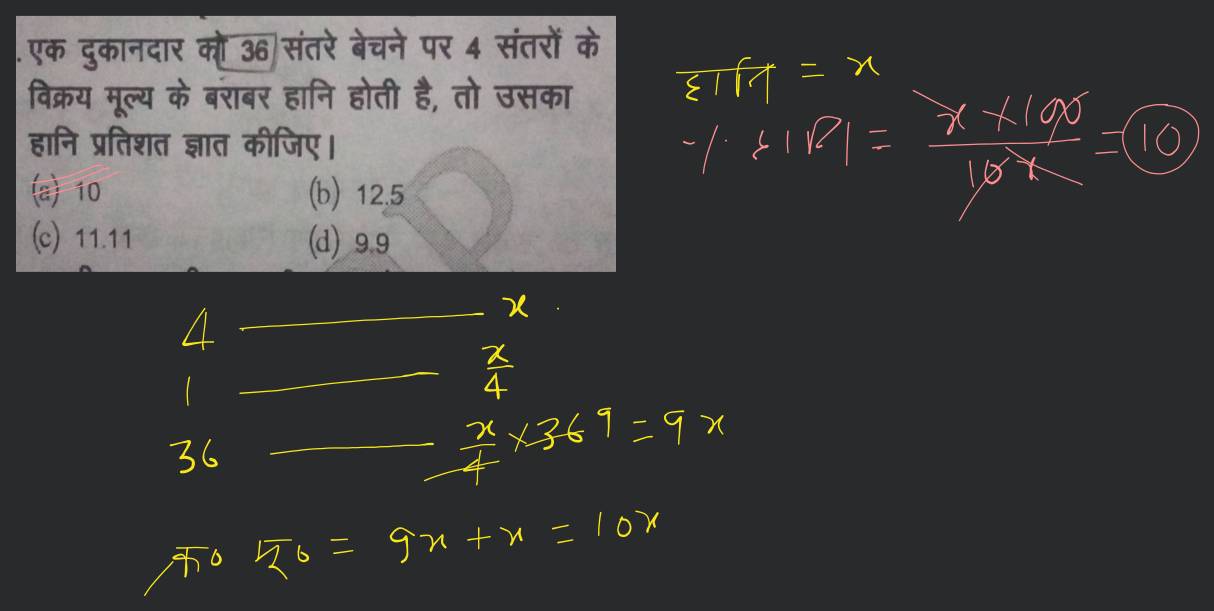 . एक दुकानदार को 36 संतरे बेचने पर 4 संतरों के
विक्रय मूल्य के बराबर हानि होती है, तो उसका
हानि प्रतिशत ज्ञात कीजिए।
(a) 10 (b) 12.5
(c) 11.11 (d) 9.9
हानि = x
% हानि = x × 100 / 10x = 10
4 — x
1 — x/4
36 — x/4 × 36 9 = 9x
क० मू० = 9x + x = 10x